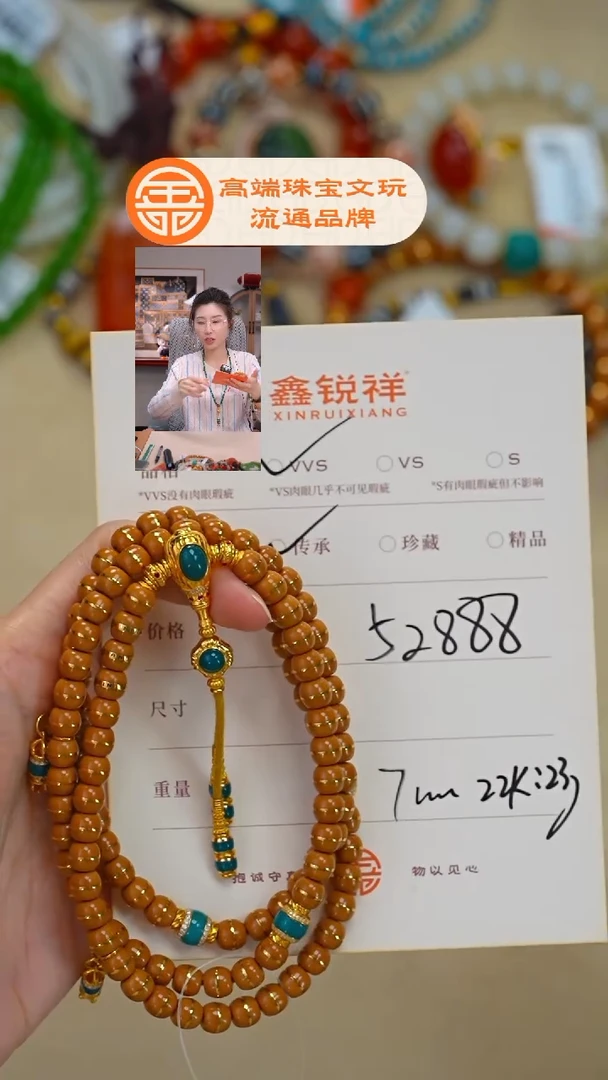 高端珠宝文玩
流通品牌
鑫锐祥
XINRUIXIANG
VVS VS S
*VVS没有肉眼瑕疵 *VS肉眼几乎不可见瑕疵 *S有肉眼瑕疵但不影响
传承 珍藏 精品
价格 52888
尺寸
重量 7mm 22K:23g
抱诚守 物以见心